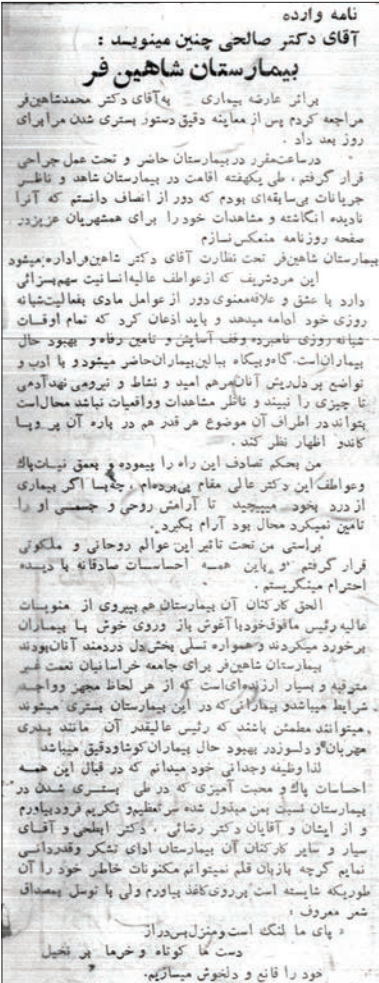 نامه وارده
آقای دکتر صالحی چنین مینویسد :
بیمارستان شاهین فر
براثر عارضه بیماری به آقای دکتر محمدشاهین‌فر
مراجعه کردم پس از معاینه دقیق دستور بستری شدن مرا برای
روز بعد داد .
در ساعت مقرر در بیمارستان حاضر و تحت عمل جراحی
قرار گرفتم ، طی یکهفته اقامت در بیمارستان شاهد و ناظر
جریانات بی‌سابقه‌ای بودم که دور از انصاف دانستم که آنرا
نادیده انگاشته و مشاهدات خود را برای همشهریان عزیز در
صفحه روزنامه منعکس نسازم
بیمارستان شاهین‌فر تحت نظارت آقای دکتر شاهین‌فر اداره میشود
این مرد شریف که از عواطف عالیه انسانیت سهم بسزائی
دارد با عشق و علاقه معنوی دور از عوامل مادی بفعالیت شبانه
روزی خود ادامه میدهد و باید اذعان کرد که تمام اوقات
شبانه روزی نامبرده وقف آسایش و تامین رفاه و بهبود حال
بیماران است. گاه و بیگاه ببالین بیماران حاضر میشود و با ادب و
تواضع بر دل ریش آنان مرهم امید و نشاط و نیرو می نهد آدمی
تا چیزی را نبیند و ناظر مشاهدات و واقعیات نباشد محال است
بتواند در اطراف آن موضوع هر قدر هم در باره آن پر و پا
کاند و اظهار نظر کند .
من بحکم تصادف این راه را پیموده و بعمق نیات پاک
و عواطف این دکتر عالی مقام پی برده‌ام ، چه بسا اگر بیماری
از درد بخود میپیچید تا آرامش روحی و جسمی او را
تامین نمیکرد محال بود آرام بگیرد .
براستی من تحت تاثیر این عوالم روحانی و ملکوتی
قرار گرفتم و باین همه احساسات صادقانه با دیده
احترام مینگریستم .
الحق کارکنان آن بیمارستان هم بپیروی از منویات
عالیه رئیس مافوق خود با آغوش باز وروی خوش با بیماران
برخورد میکردند و همواره تسلی بخش دل دردمند آنان بودند
بیمارستان شاهین‌فر برای جامعه خراسانیان نعمت غیر
مترقبه و بسیار ارزنده‌ای است که از هر لحاظ مجهز وواجد
شرایط میباشد و بیمارانی که در این بیمارستان بستری میشوند
میتوانند مطمئن باشند که رئیس عالیقدر آن مانند پدری
مهربان و دلسوز در بهبود حال بیماران کوشا و دقیق میباشد
لذا وظیفه وجدانی خود میدانم که در قبال این همه
احساسات پاک و محبت آمیزی که در طی بستری شدن در
بیمارستان نسبت بمن مبذول شده سر تعظیم و تکریم فرود بیاورم
و از ایشان و آقایان دکتر رضائی ، دکتر ابطحی و آقای
سیار و سایر کارکنان آن بیمارستان ادای تشکر وقدردانی
نمایم گرچه بازبان قلم نمیتوانم مکنونات خاطر خود را آن
طوریکه شایسته است بر روی کاغذ بیاورم ولی با توسل بمصداق
شعر معروف :
« پای ما لنگ است و منزل بس دراز
دست ما کوتاه و خرما بر نخیل »
خود را قانع و دلخوش میسازیم.